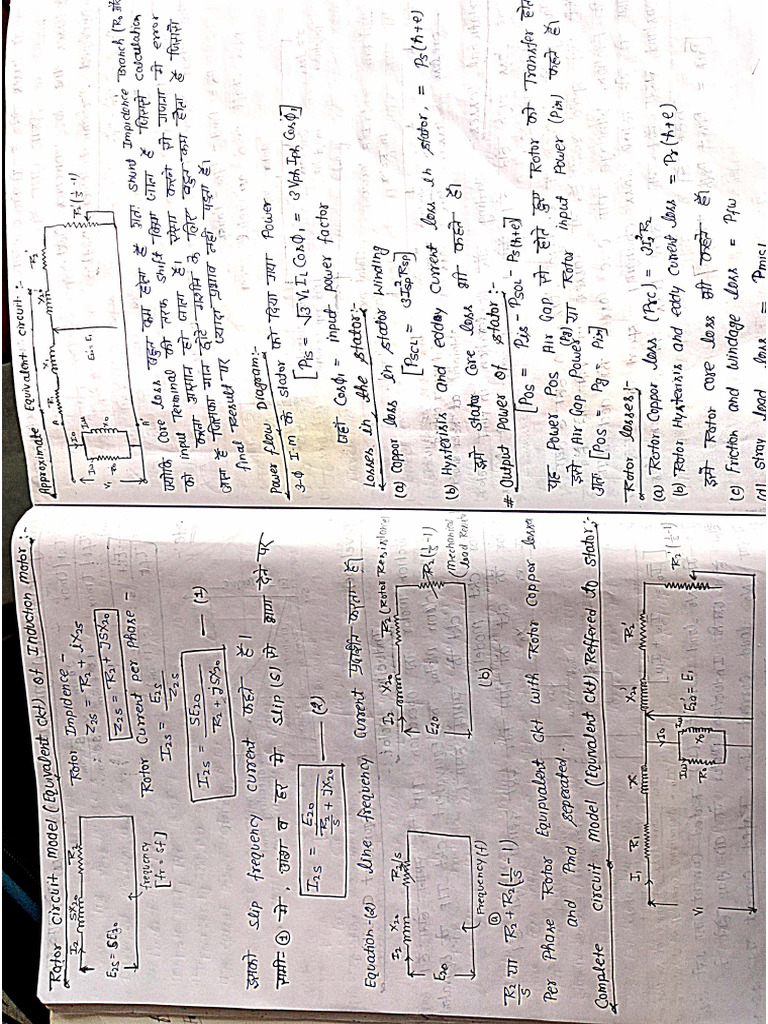 Rotor circuit model (Equivalent ckt) of Induction motor :-
I2 SX20 R2
E2S = SE20
frequency
[fr = sf]
Rotor Impidence -
Z2S = R2 + jX2S
Z2S = R2 + JSX20
Rotor Current per phase -
I2S = E2S / Z2S
I2S = SE20 / R2 + jSX20 — (1)
इसको slip frequency current कहते है।
समी० ① मे, अंश व हर मे slip (s) से भाग देने पर
I2S = E20 / R2/S + JX20 — (2)
Equation-(2) line frequency current प्रदर्शित करता है।
I2 X20 R2/s
E20
Frequency (f)
I2 X20 R2 (Rotor Resistance)
E20
R2 (1/s -1)
(Mechanical
(b)
R2/S या R2 + R2 (1/S -1)
(a)
Per Phase Rotor Equipvalent ckt with Rotor coppor losse
and Pmd seperated.
Complete circuit model (Equivalent ckt) Reffered to stator:-
I1 R1 X X20' R2'
V1
I0
Iω
R0 X0
E20' = E1
R2' (1/s -1)
Approximate Equivalent circuit :-
A
I0
Iω Iμ
R0 X0
V1
A'
E20' = E1
R2' (1/s -1)
क्योकि core loss बहुत कम होता है अतः shunt Impidence Branch (R0
को input Terminal की तरफ shift किया जाता है जिससे calculation
करना आसान हो जाता है। ऐसा करने से गणना मे error
आता है जिसका मान छोटे मशीन के लिए बहुत कम होता है जिससे
final Result पर ज्यादा प्रभाव नही पड़ता है।
Power flow Diagram:-
3-ϕ I.m के stator को दिया गया Power
[Pis = √3 VL IL Cosϕ1 = 3 Vph Iph Cosϕ1]
यहाँ Cosϕ1 = input power factor
Losses in the stator:-
(a) Coppor loss in stator winding
[PSCL = 3I²SP RSP]
(b) Hysterisis and eddey current loss in stator, = Ps (h+e)
इसे stator core loss भी कहते है।
# Output Power of stator:-
[Pos = Pis - PSCL - Ps(h+e)]
यह Power Pos Air Gap से होते हुए Rotor को Transfer होता
इसे Air Gap Power (Pg) या Rotor input Power (Pin) कहते है।
अतः [Pos = Pg = Pin]
Rotor losses:-
(a) Rotor Coppor loss (Prc) = 3I2² R2
(b) Rotor Hysterisis and eddy current loss = Pr (h+e)
इसे Rotor core loss भी कहते है।
(c) Friction and windage loss = Pfw
(d) stray load loss = Pmisl